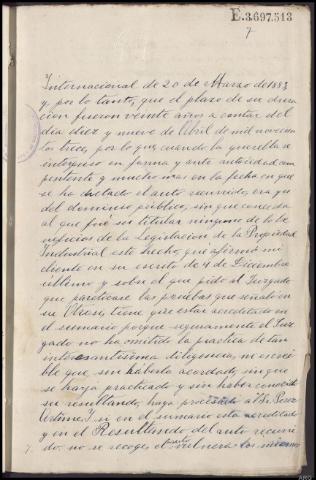 E.3.697.513
7
Internacional de 20 de Marzo de 1883
y por lo tanto, que el plazo de su dura
cion fueron veinte años a contar del
dia diez y nueve de Abril de mil novecien
tos trece, por lo que, cuando la querella se
interpuso en forma y ante autoridad com
petente y mucho mas en la fecha en que
se ha dictado el auto recurrido, era ya
del dominio público, sin que conceda
al que fué su titular ninguno de los be
neficios de la Legislacion de la Propiedad
Industrial este hecho, que afirmó mi
cliente en su escrito de 4 de Diciembre
último y sobre el que pidió al Juzgado
que practicase las pruebas que señaló en
su Otrosi, tiene que estar acreditado en
el sumario porque seguramente el Juz
gado no ha omitido la practica de tan
interesantisima diligencia, ni es creí
ble que sin haberlo acordado, sin que
se haya practicado y sin haber conocido
su resultando, haya procesado a Vr. Perez
Artime. Y si en el sumario esta acreditado
y en el Resultando del auto recurri
do no se recoge, el auto vulnera los mismos
7.